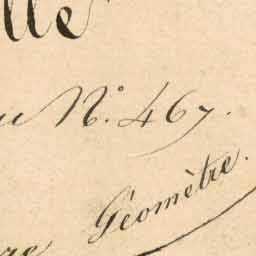 lle
N.° 467.
Géomètre.
re